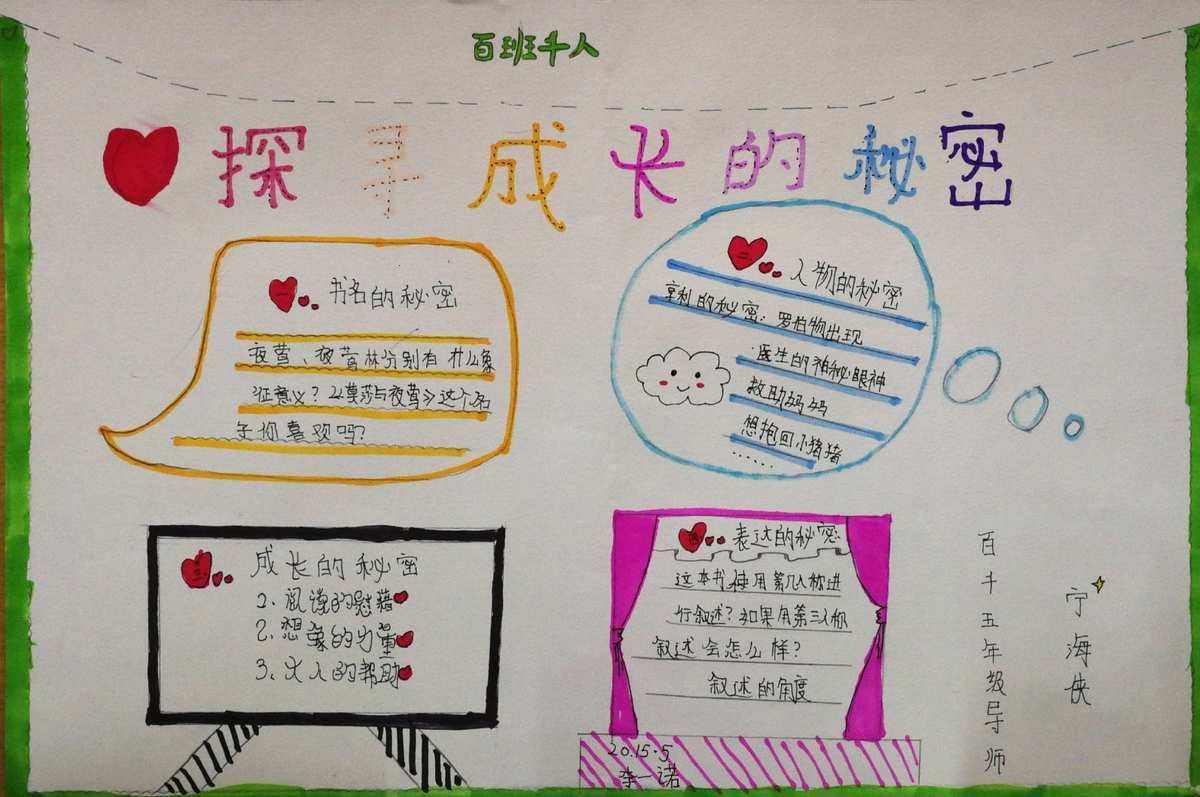 百班千人
探寻成长的秘密
一
书名的秘密
夜莺、夜莺林分别有什么象
征意义？《莫莎与夜莺》这个名
字你喜欢吗？
二
人物的秘密
亨利的秘密：罗伯物出现
医生的神秘眼神
救助妈妈
想抱回小猪猪
……
三
成长的秘密
1. 阅读的慰藉
2. 想象的力量
3. 大人的帮助
四
表达的秘密
这本书使用第几人称进
行叙述？如果用第三人称
叙述会怎么样？
叙述的角度
2015.5
李一诺
百千五年级导师
宁海侠